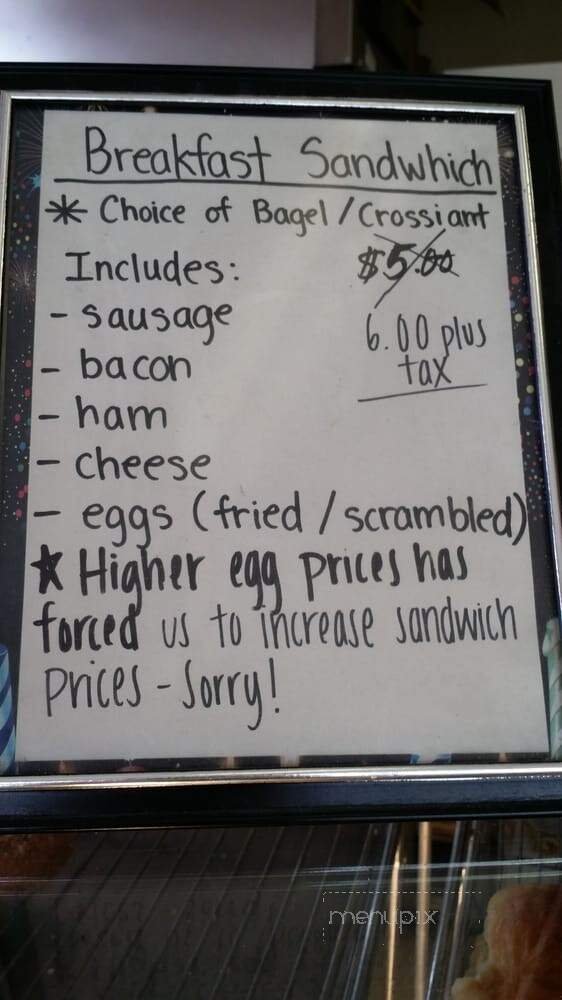 Breakfast Sandwhich
* Choice of Bagel / Crossiant
Includes:
$5.00
- sausage
6.00 plus
tax
- bacon
- ham
- cheese
- eggs (fried / scrambled)
★ Higher egg prices has
forced us to increase sandwich
prices - Sorry!
menupix